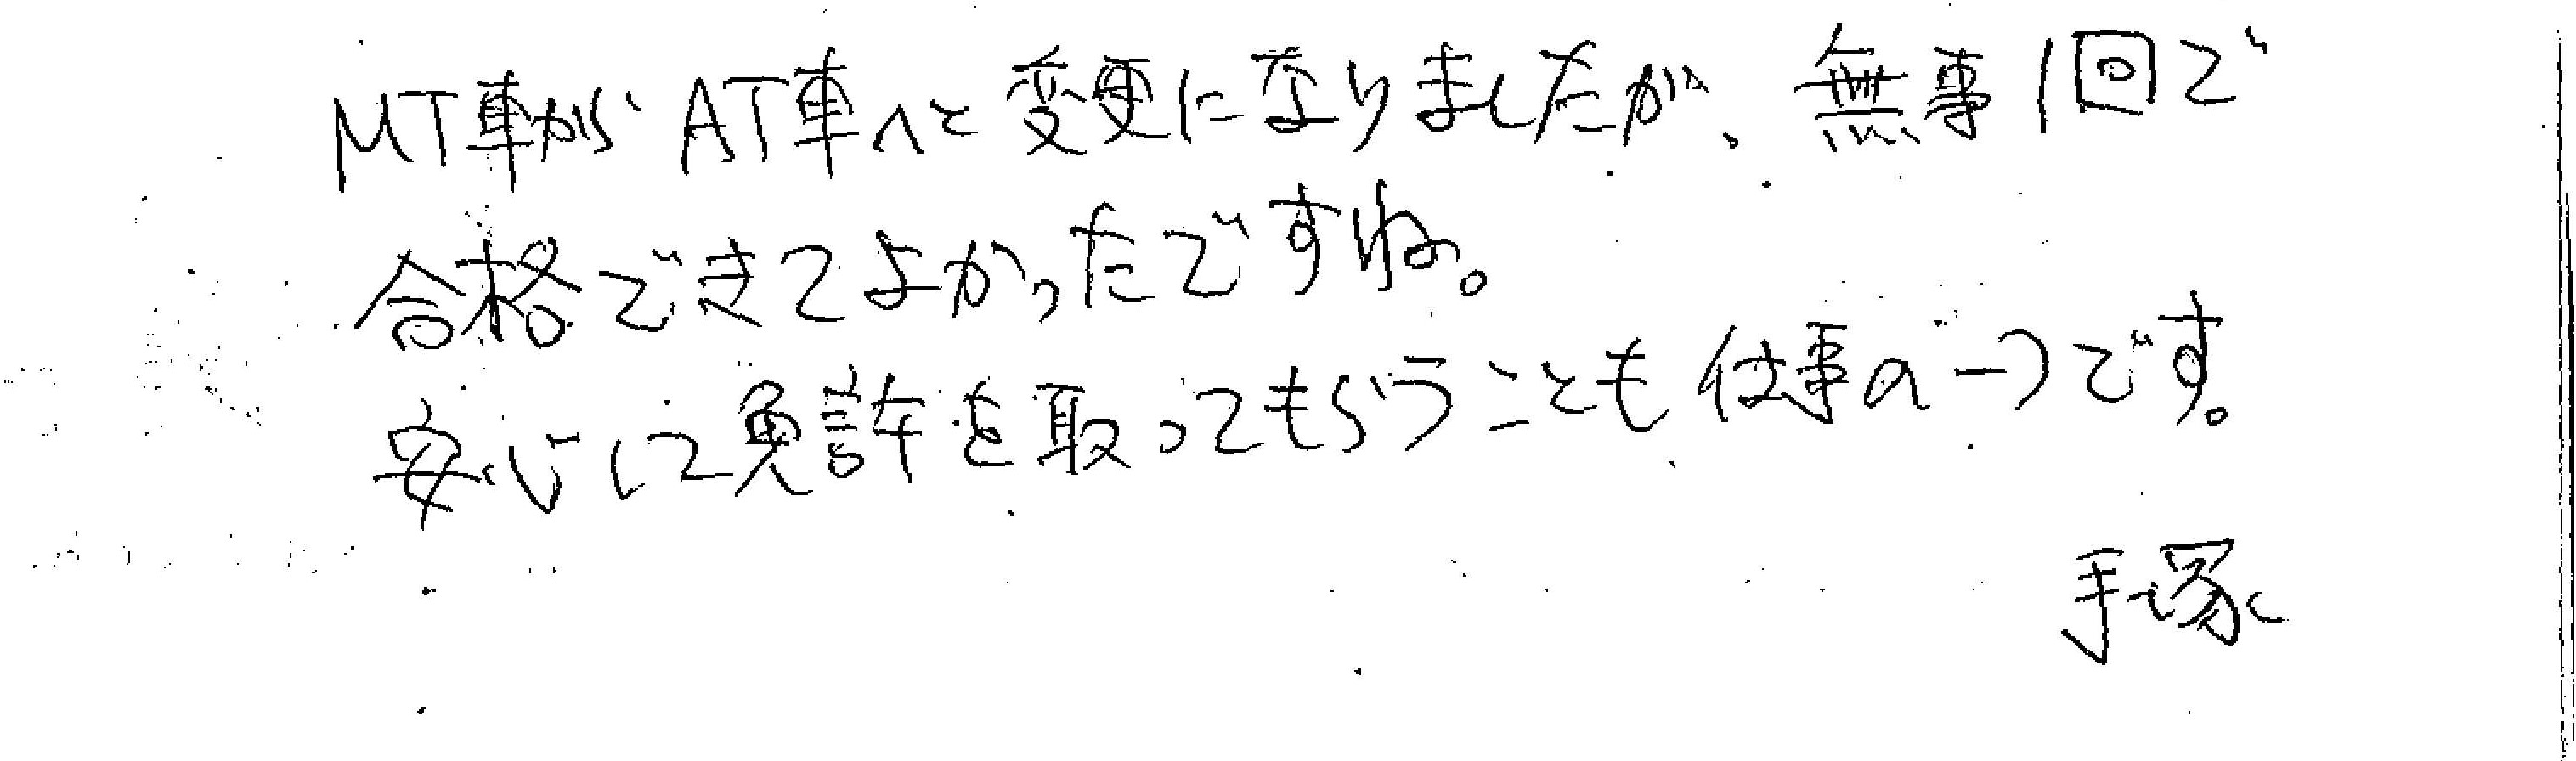 MT車からAT車へと変更になりましたが、無事1回で
合格できてよかったですね。
安心して免許を取ってもらうことも仕事の一つです。
手塚